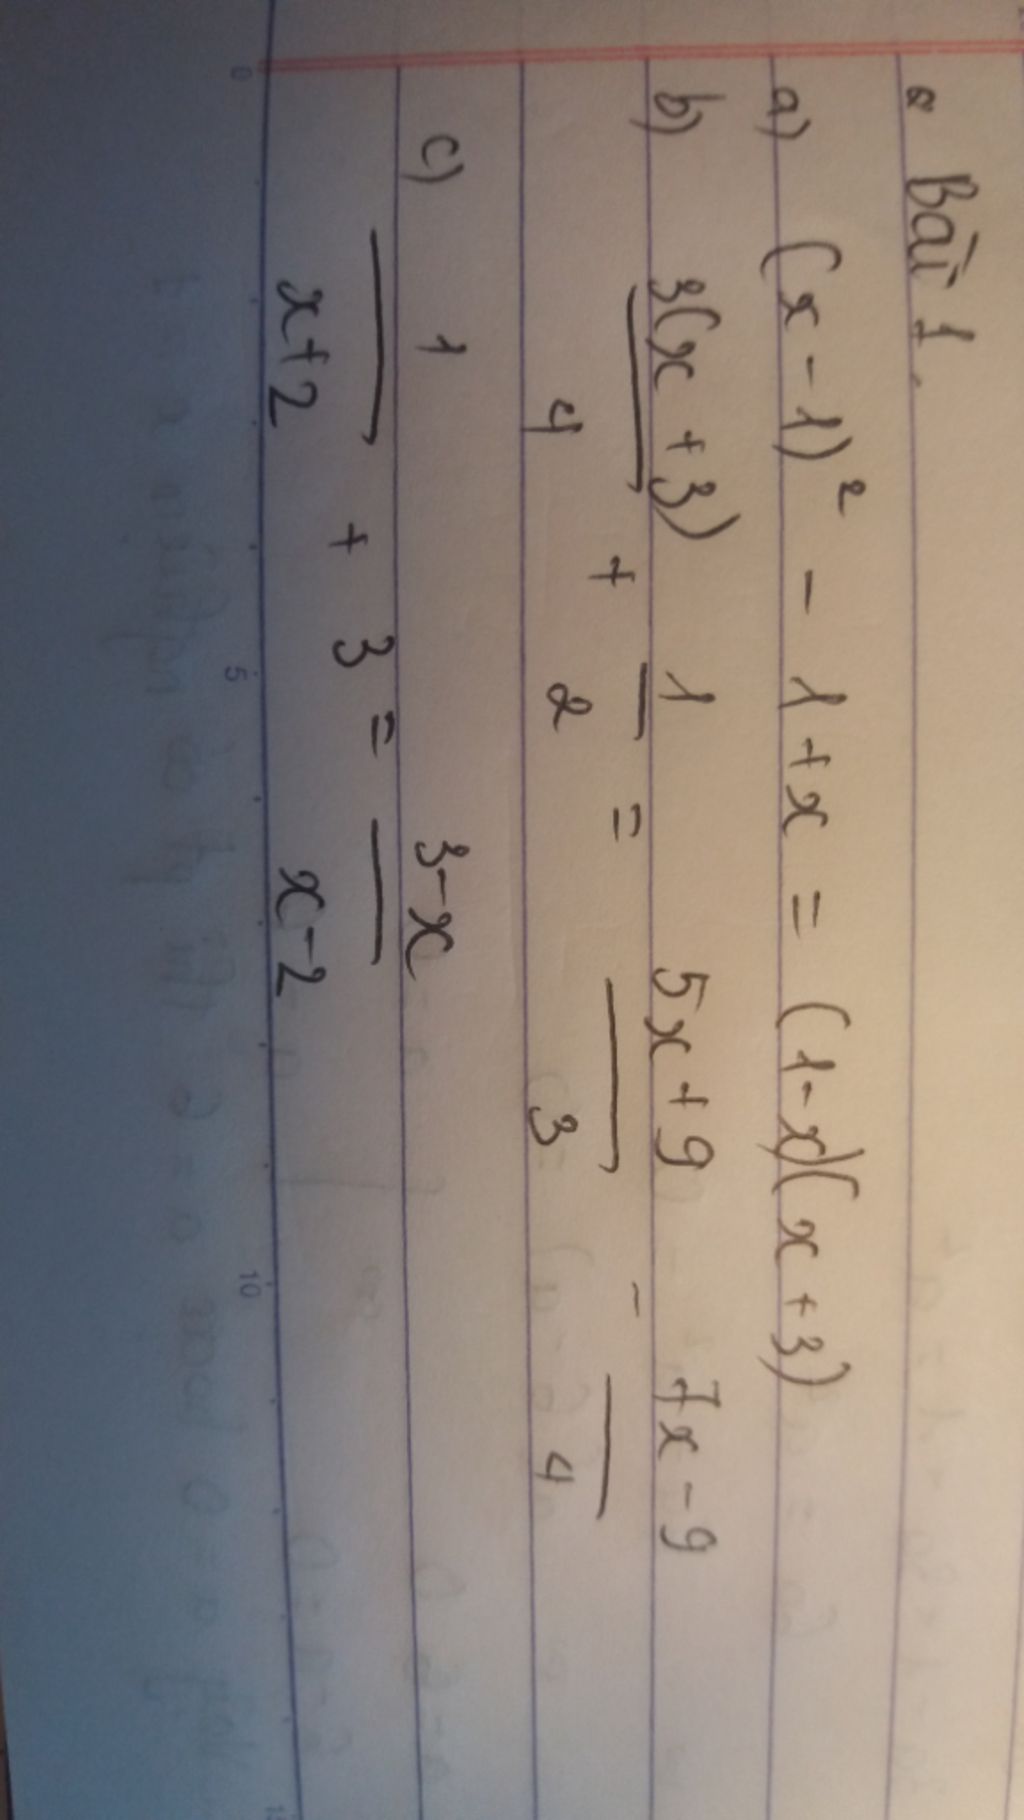 Bài 1.
a) (x - 1)² - 1 + x = (1 - x)(x + 3)
b) 3(x + 3)/4 + 1/2 = 5x + 9/3 - 7x - 9/4
c) 1/x + 2 + 3 = 3 - x/x - 2
0 5 10